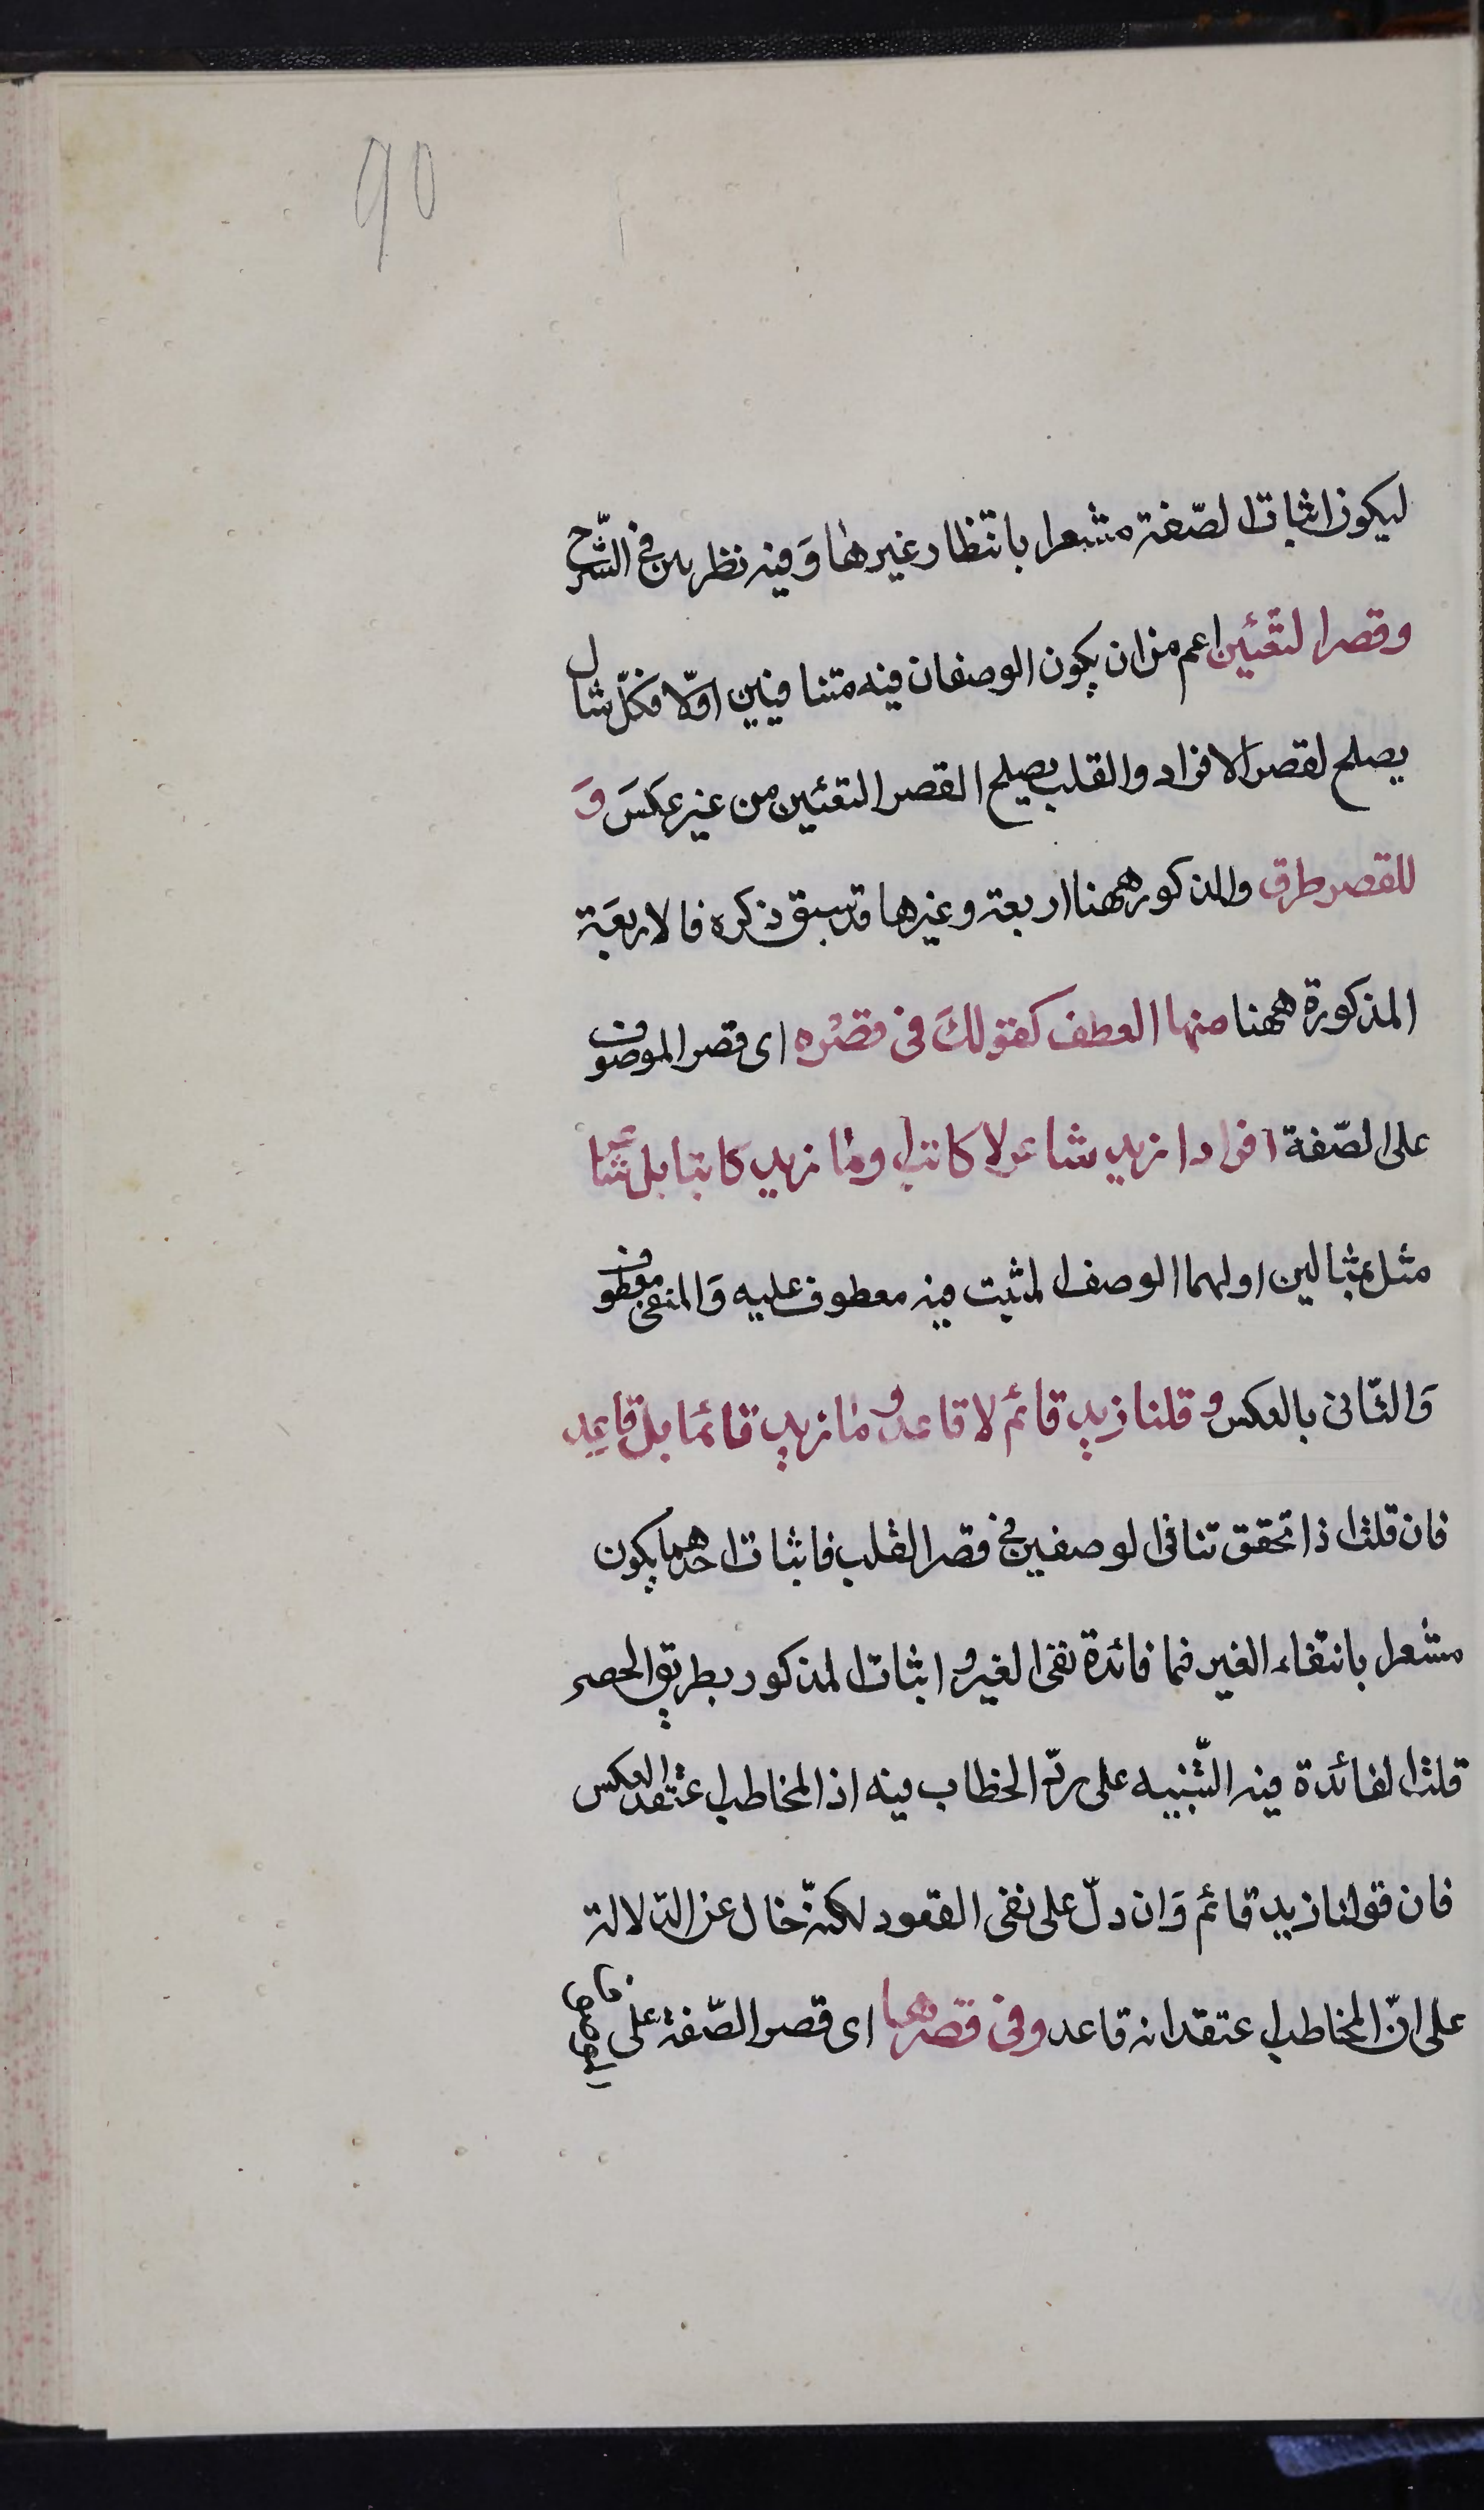 90
ليكون اثبات الصّفة مشعرا بانتظار غيرها وَفيه نظر بين فى الشّرح
وقصر التعّئين اعم من ان يكون الوصفان فيه متنافيين اوّلا فكلّ مثال
يصلح لقصر الافراد والقلب يصلح القصر التعئين من غير عكسَ وَ
للقصر طرق والمذكور ههنا اربعة وغيرها قد سبق ذكره فالاربعَة
المذكورة ههنا منها العطف كقولكَ فى قصْره اى قصر الموصوف
على الصّفة افرادا زيد شاعر لا كاتب وما زيد كاتبا بل شا
مثل بمثالين اولهما الوصف المثبت فيه معطوف عليه وَالمنفى معطوف
وَالثّانى بالعكس وقلنا زيد قائم لا قاعد و ما زيد قائما بل قاعِد
فان قلت اذا تحقق تنافى الوصفين فى قصر القلب فاثبات احدهما يكون
مشعرا بانتفاء الغير فما فائدة نفى الغير و اثبات المذكور بطريق الحصر
قلت الفائدة فيه التّنبيه على ردّ الخطاب فيه اذ المخاطب اعتقد العكس
فان قولنا زيد قائم وَان دلّ على نفى القعود لكنّه خال عن الدّلالة
على انّ المخاطب اعتقد انه قاعد وفى قصرها اى قصر الصّفة على